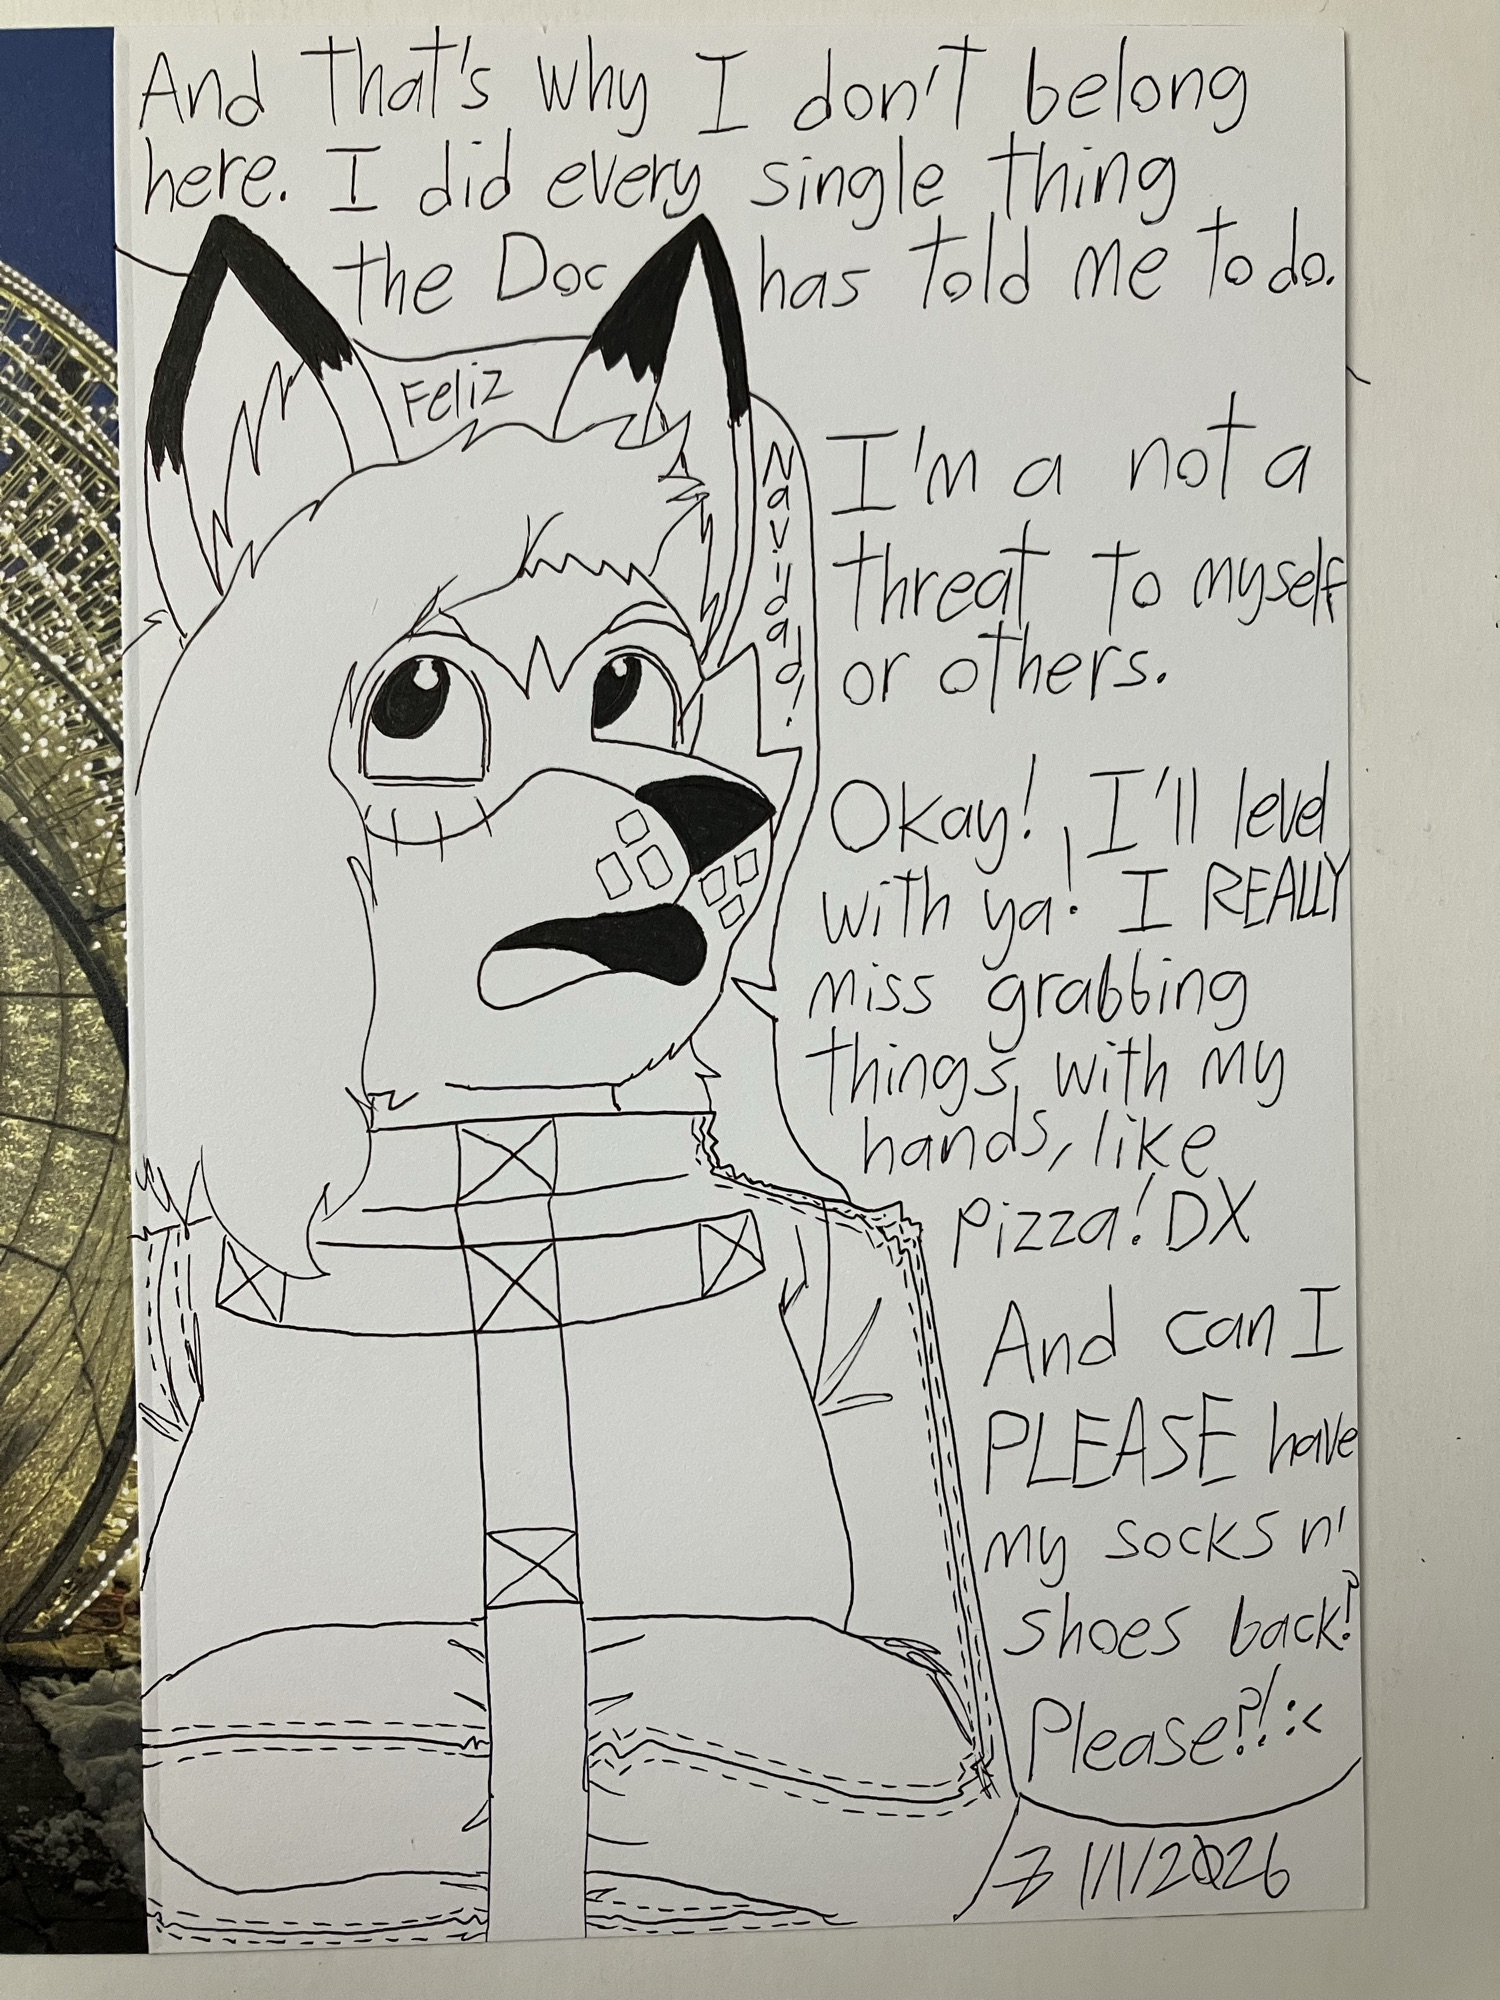 And that's why I don't belong
here. I did every single thing
the Doc has told me to do.
Feliz
Navidad!
I'm a not a
threat to myself
or others.
Okay! I'll level
with ya! I REALLY
miss grabbing
things, with my
hands, like
pizza! DX
And can I
PLEASE have
my socks n'
shoes back?!
Please?! :<
1/1/2026